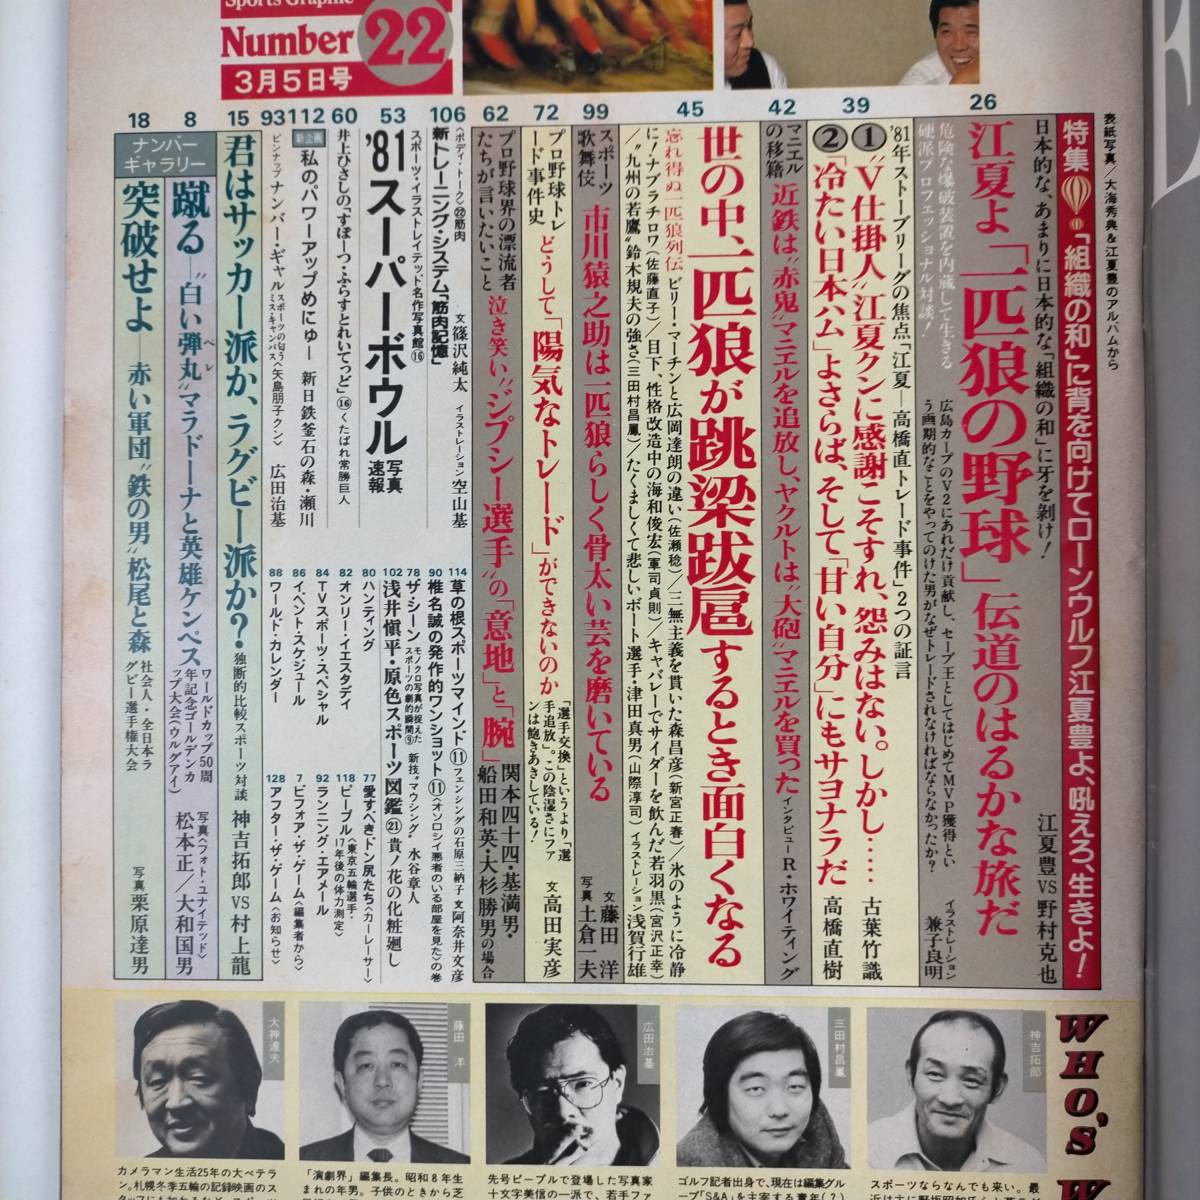 Sports Graphic
Number 22
3月5日号
表紙写真／大海秀典＆江夏豊のアルバムから
特集 「組織の和」に背を向けてローンウルフ江夏豊よ、吼えろ、生きよ!
日本的な、あまりに日本的な「組織の和」に牙を剥け!
26
江夏よ「一匹狼の野球」伝道のはるかな旅だ
江夏豊VS野村克也
危険な爆破装置を内蔵して生きる
硬派プロフェッショナル対談!
広島カープのV2にあれだけ貢献し、セーブ王としてはじめてMVP獲得とい
う画期的なことをやってのけた男がなぜトレードされなければならなかったか?
イラストレーション 兼子良明
39
'81年ストーブリーグの焦点「江夏―高橋直トレード事件」2つの証言
①“V仕掛人”江夏クンに感謝こそすれ、怨みはない。しかし…… 古葉竹識
②「冷たい日本ハム」よさらば、そして「甘い自分」にもサヨナラだ 高橋直樹
42
マニエルの移籍
近鉄は“赤鬼”マニエルを追放し、ヤクルトは“大砲”マニエルを買った
インタビューR・ホワイティング
45
世の中、一匹狼が跳梁跋扈するとき面白くなる
忘れ得ぬ一匹狼列伝
ビリー・マーチンと広岡達朗の違い(佐瀬稔)／三無主義を貫いた森昌彦(新宮正春)／氷のように冷静
に!ナブラチロワ(佐藤直子)／目下、性格改造中の海和俊宏(軍司貞則)／キャバレーでサイダーを飲んだ若羽黒(宮沢正幸)
／“九州の若鷹”鈴木規夫の強さ(三田村昌鳳)／たくましくて悲しいボート選手・津田真男(山際淳司) イラストレーション 浅賀行雄
99
スポーツ歌舞伎
市川猿之助は一匹狼らしく骨太い芸を磨いている
文 藤田洋
写真 土倉一夫
72
プロ野球トレード事件史
どうして「陽気なトレード」ができないのか
「選手交換」というより「選
手追放」。この陰湿さにファ
ンは飽きあきしている!
文 高田実彦
62
プロ野球界の漂流者
たちが言いたいこと
泣き笑い“ジプシー選手”の「意地」と「腕」
関本四十四・基満男・
船田和英・大杉勝男の場合
106
〈ボディ・トーク〉㉒筋肉
新トレーニング・システム「筋肉記憶」
文 篠沢純太 イラストレーション 空山基
53
スポーツ・イラストレイテッド名作写真館⑯
'81スーパーボウル
写真速報
60
井上ひさしの「すぽーつ・ふらすとれいてっど」⑯くたばれ常勝巨人
112
新企画 私のパワーアップめにゅー 新日鉄釜石の森・瀬川
93
ピンナップ ナンバー・ギャル
スポーツの匂う
ミス・キャンパス〈矢島朋子クン〉
広田治基
114 草の根スポーツマインド⑪フェンシングの石原三納子 文 阿奈井文彦
90 椎名誠の発作的ワンショット⑪〈オソロシイ悪者のいる部屋を見た〉の巻
78 ザ・シーン
モノクロ写真が捉えた
スポーツの劇的瞬間⑨
新技“マウシング” 水谷章人
102 浅井慎平・原色スポーツ図鑑㉑貴ノ花の化粧廻し
80 ハンティング
82 オンリー・イエスタデイ
84 TVスポーツ・スペシャル
86 イベント・スケジュール
88 ワールド・カレンダー
77 愛すべき、ドン尻たち〈カーレーサー〉
118 ピープル〈東京五輪選手・17年後の体力測定〉
92 ランニング・エアメール
7 ビフォア・ザ・ゲーム〈編集者から〉
128 アフター・ザ・ゲーム〈お知らせ〉
15
君はサッカー派か、ラグビー派か?
独断的比較スポーツ対談
神吉拓郎VS村上龍
ナンバーギャラリー
8
蹴る―“白い弾丸”マラドーナと英雄ケンペス
ペレ
ワールドカップ50周
年記念ゴールデンカ
ップ大会(ウルグアイ)
写真〈フォト・ユナイテッド〉
松本正／大和国男
18
突破せよ―赤い軍団“鉄の男”松尾と森
社会人・全日本ラ
グビー選手権大会
写真 栗原達男
WHO'S W
神吉拓郎
三田村昌鳳
広田治基
藤田洋
大神達夫
カメラマン生活25年の大ベテラ
ン。札幌冬季五輪の記録映画のス
「演劇界」編集長。昭和8年生
まれの年男。子供のときから芝
先号ピープルで登場した写真家
十文字美信の一派で、若手ファ
ゴルフ記者出身で、現在は編集グルー
プ「S&A」を主宰する青年(?)
スポーツならなんでも来い。最